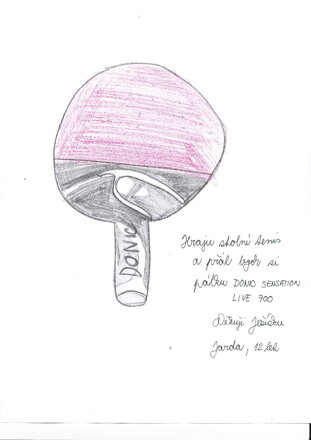 DONIC
Hraju stolní tenis
a přál bych si
pálku DONIC SENSATION
LIVE 700
Děkuji Ježíšku
Jarda, 12 let